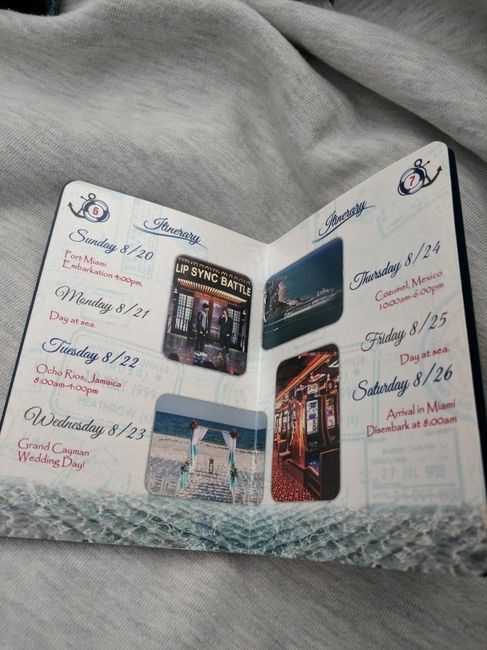 6
Itinerary
Sunday 8/20
Port Miami
Embarkation 4:00pm.
Monday 8/21
Day at sea.
Tuesday 8/22
Ocho Rios, Jamaica
8:00am-4:00pm
Wednesday 8/23
Grand Cayman
Wedding Day!
LIP SYNC BATTLE
7
Itinerary
Thursday 8/24
Cozumel, Mexico
10:00am-6:00pm
Friday 8/25
Day at sea.
Saturday 8/26
Arrival in Miami
Disembark at 8:00am
27 JUL 1999